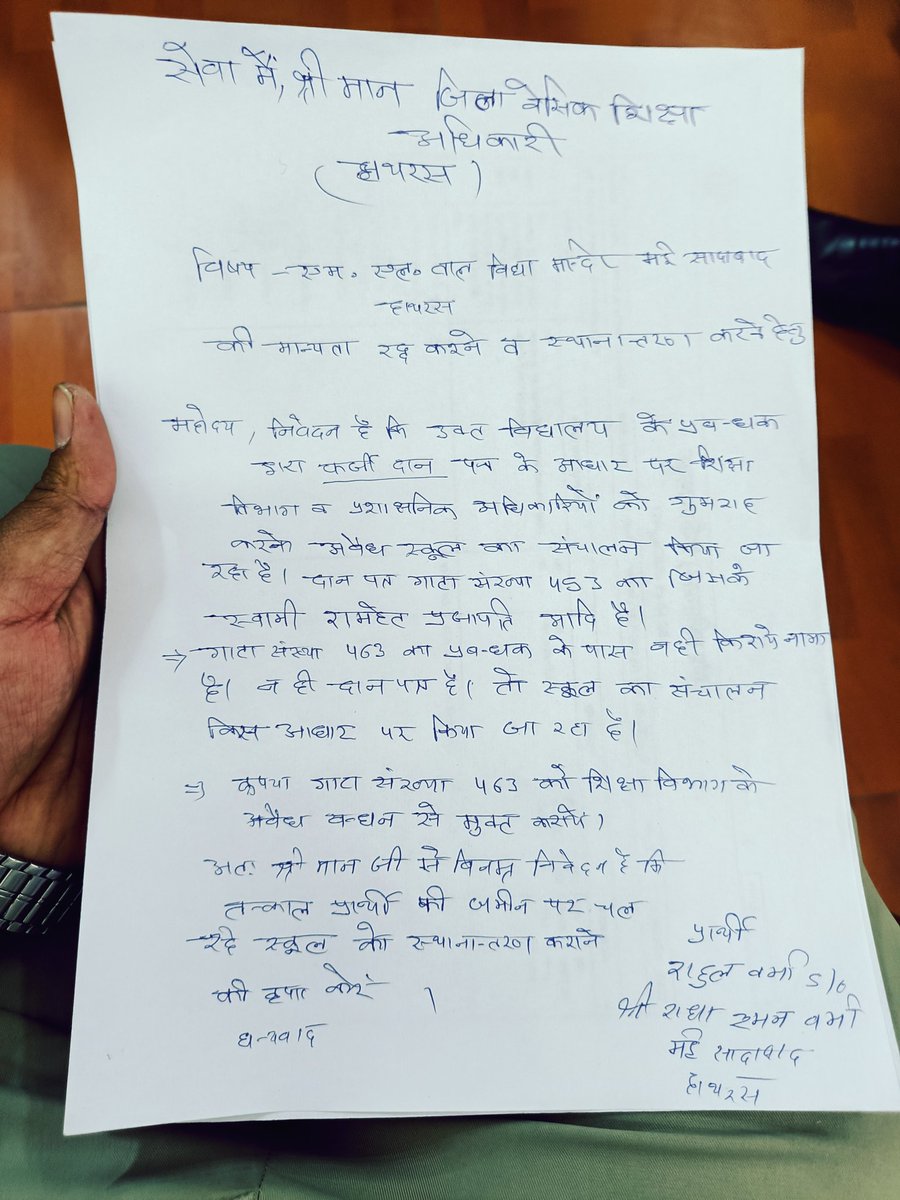 सेवा में, श्री मान जिला बेसिक शिक्षा
अधिकारी
(हाथरस)
विषय - एम. एल. बाल विद्या मन्दिर मई सादाबाद
हाथरस
की मान्यता रद्द करने व स्थानान्तरण करने हेतु
महोदय, निवेदन है कि उक्त विद्यालय के प्रबन्धक
द्वारा फर्जी दान पत्र के आधार पर शिक्षा
विभाग व प्रशासनिक अधिकारियों को गुमराह
करके अवैध स्कूल का संचालन किया जा
रहा है। दान पत्र गाटा संख्या 453 का जिसके
स्वामी रामहेत प्रजापति आदि है।
⇒ गाटा संख्या 463 का प्रबन्धक के पास नही किराये नामा
है। न ही दान पत्र है। तो स्कूल का संचालन
किस आधार पर किया जा रहा है।
⇒ कृपया गाटा संख्या 463 को शिक्षा विभाग के
अवैध बन्धन से मुक्त करायें।
अतः श्री मान जी से विनम्र निवेदन है कि
तत्काल प्रार्थी की जमीन पर चल
रहे स्कूल को स्थानान्तरण कराने
की कृपा करें ।
धन्यवाद
प्रार्थी
राहुल वर्मा S/o
श्री राधा रमन वर्मा
मई सादाबाद
हाथरस